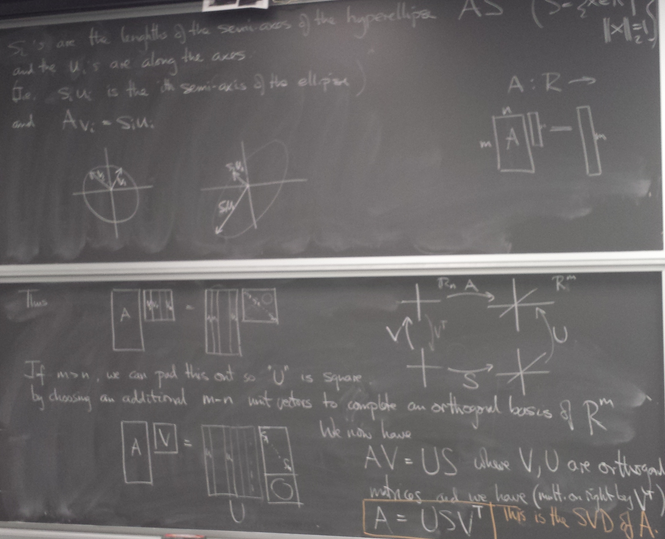 Si's are the lengths of the semi-axes of the hyperellipse AS (S = {x∈R
||x||₂=1}
and the ui's are along the axes
(I.e. siui is the ith semi-axis of the ellipse)
and Avi = siui
A : R →
n
m A = m
Thus A =
Rn A R^m
V V^T U
S
If m>n, we can pad this out so "U" is square
by choosing an additional m-n unit vectors to complete an orthogonal basis of R^m
We now have
A V =
U
AV = US where V, U are orthogonal
matrices and we have (mult. on right by V^T)
A = USV^T This is the SVD of A.